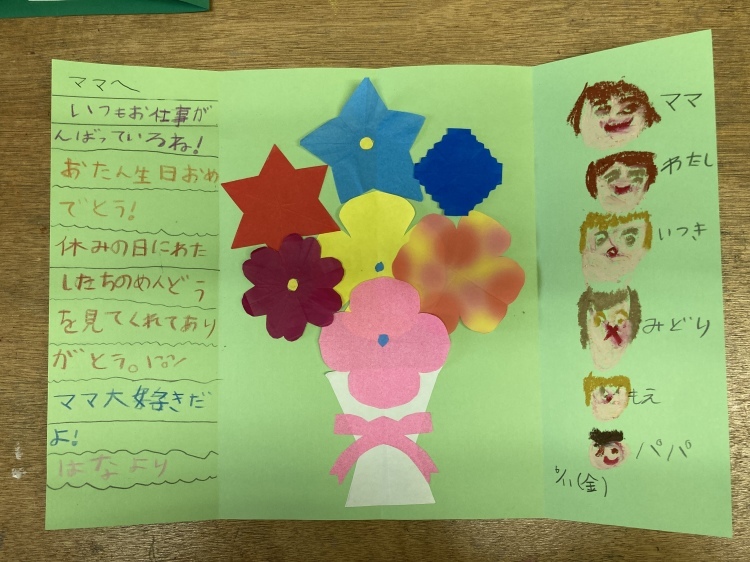 ママへ
いつもお仕事が
んばっているね!
おたん生日おめ
でとう!
休みの日にわた
したちのめんどう
を見てくれてあり
がとう。
ママ大好きだ
よ!
はなより
ママ
わたし
いつき
みどり
もえ
パパ
6/11(金)